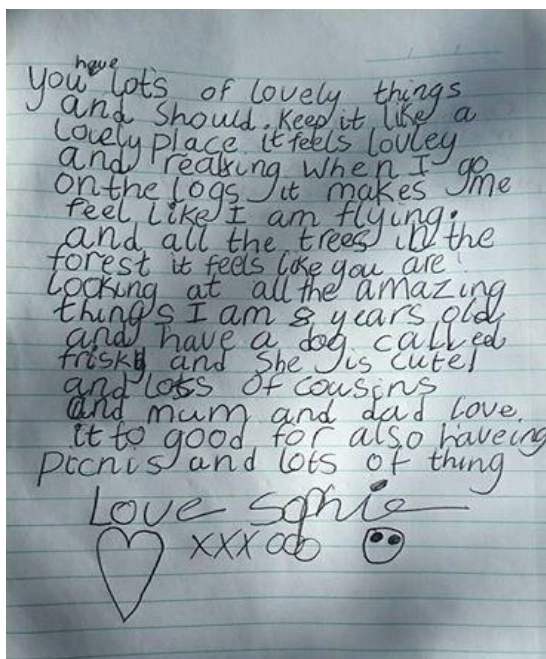 have
you lots of lovely things
and should. keep it like a
lovely place it feels lovley
and reaking when I go
on the logs it makes me
feel like I am flying.
and all the trees in the
forest it feels like you are
looking at all the amazing
things I am 8 years old
and have a dog called
frisky and she is cute!
and lots of cousins
and mum and dad love.
it to good for also haveing
picnis and lots of thing
Love Sophie
xxx ooo